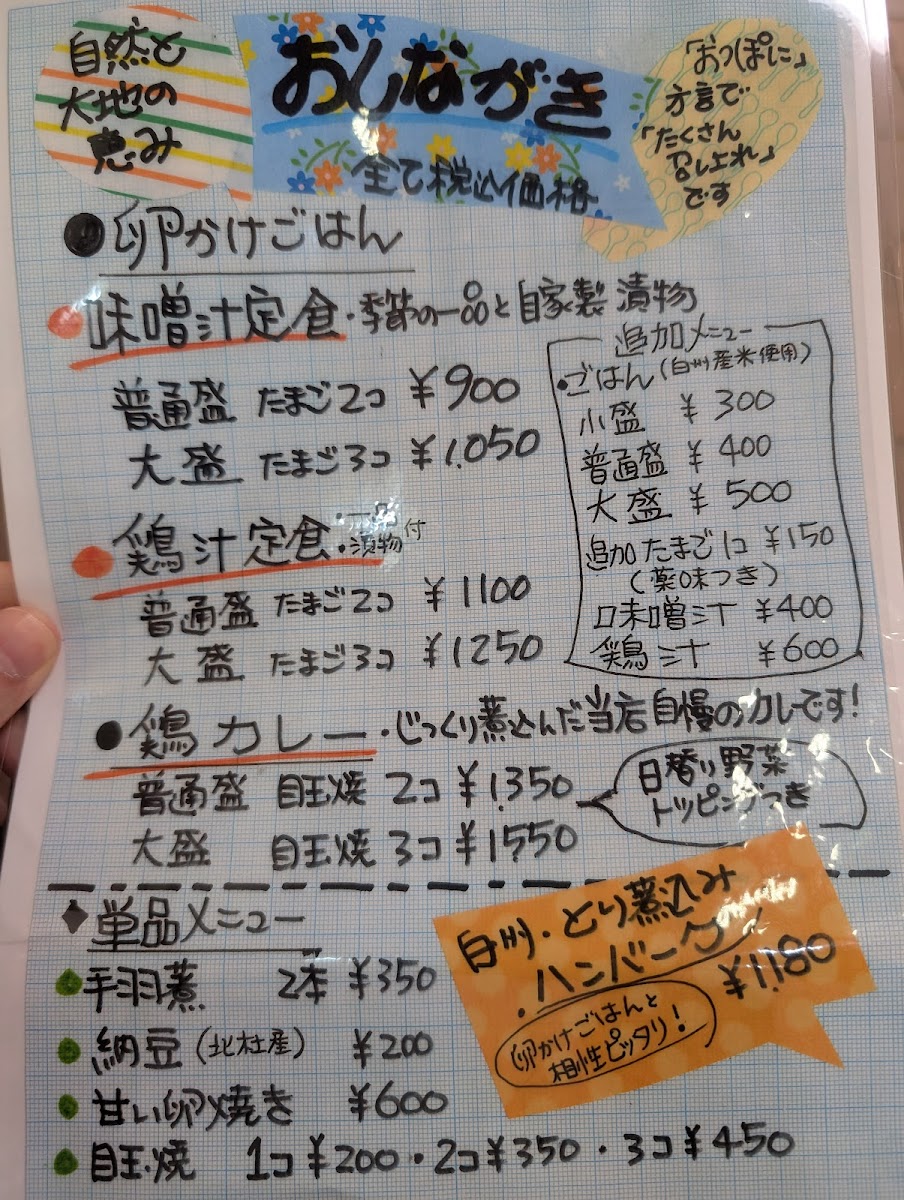 自然と
大地の
恵み
おしながき
全て税込価格
「おっぽに」
方言で
「たくさん
召し上れ」
です
●卵かけごはん
味噌汁定食・季節の一品と自家製漬物
普通盛 たまご2コ ¥900
大盛 たまご3コ ¥1,050
鶏汁定食・一品・漬物付
普通盛 たまご2コ ¥1100
大盛 たまご3コ ¥1250
追加メニュー
・ごはん(白州産米使用)
小盛 ¥300
普通盛 ¥400
大盛 ¥500
追加たまご1コ ¥150
(薬味つき)
味噌汁 ¥400
鶏汁 ¥600
●鶏カレー・じっくり煮込んだ当店自慢のカレーです!
普通盛 目玉焼 2コ ¥1,350
大盛 目玉焼 3コ ¥1,550
日替り野菜
トッピングつき
◆単品メニュー
手羽煮 2本 ¥350
納豆(北杜産) ¥200
甘い卵焼き ¥600
目玉焼 1コ¥200・2コ¥350・3コ¥450
白州・とり煮込み
ハンバーグ
¥1,180
卵かけごはんと
相性ピッタリ!